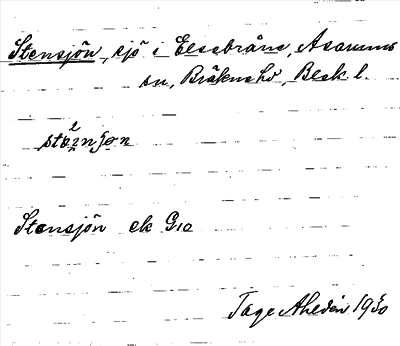 Stensjön, sjö i Elsebråne, Asarums
sn, Bräkne hd, Blek l.
Stensjön ek G10
Tage Ahldén 1930